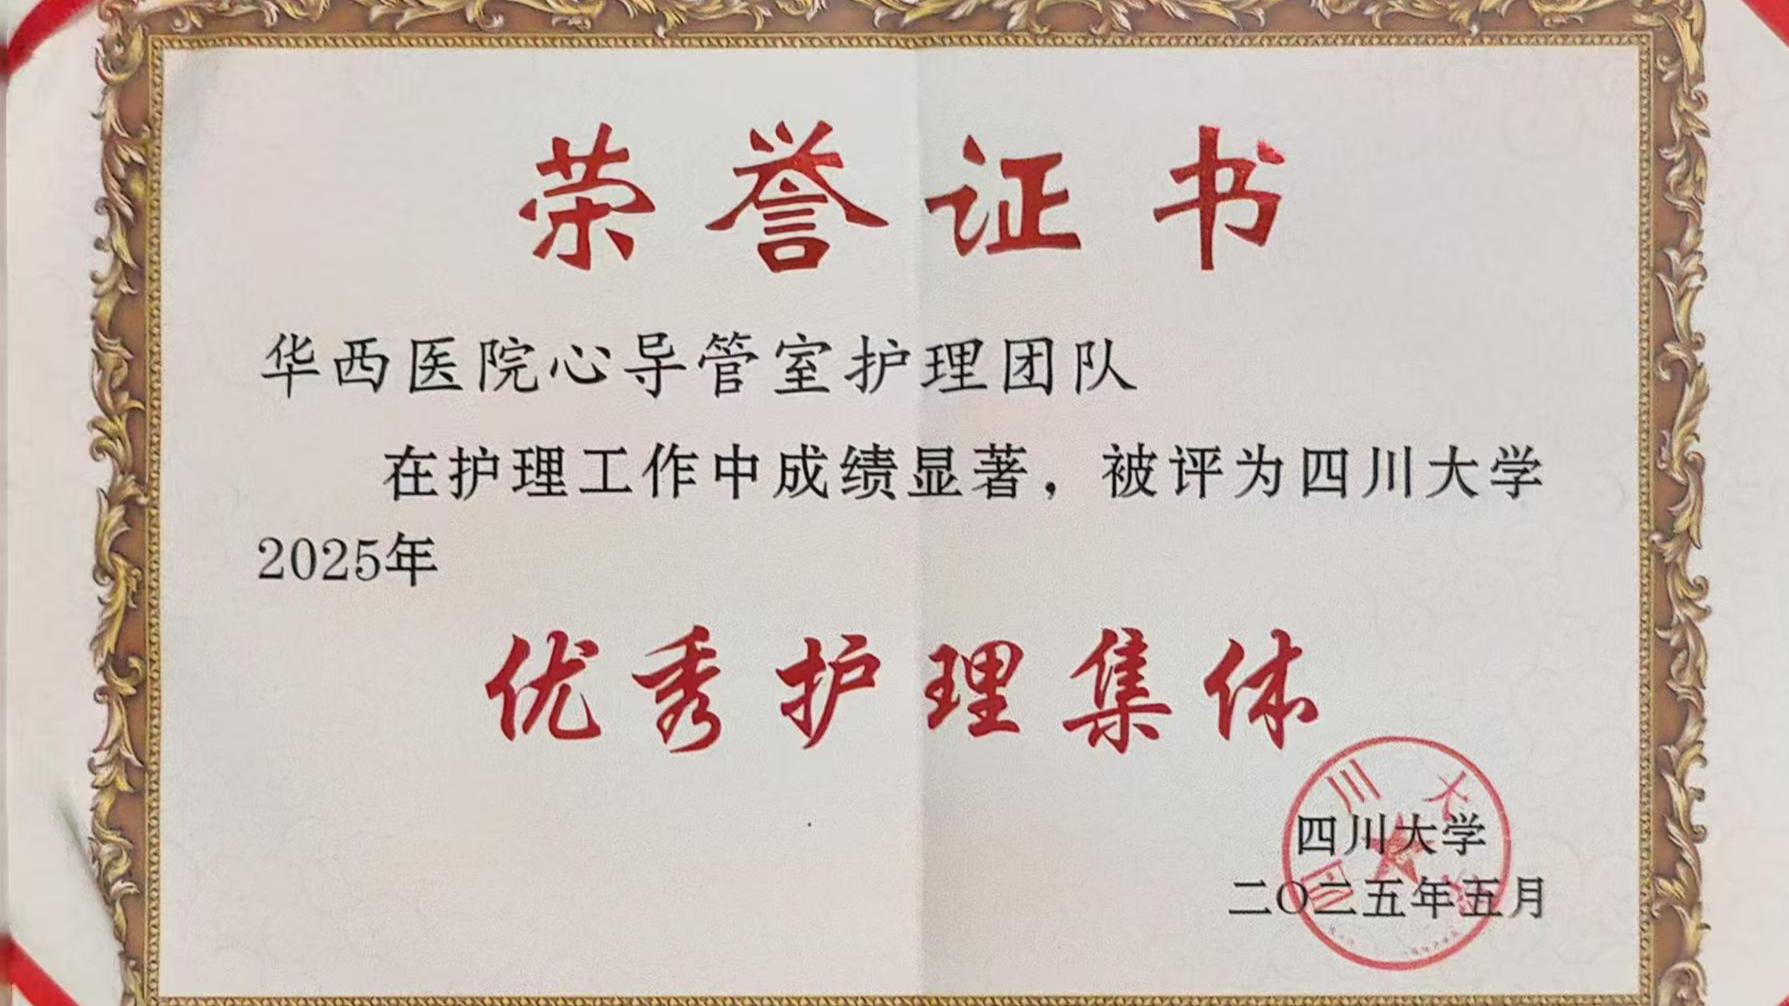 荣誉证书
华西医院心导管室护理团队
在护理工作中成绩显著，被评为四川大学
2025年
优秀护理集体
四川大学
四川大学
二〇二五年五月